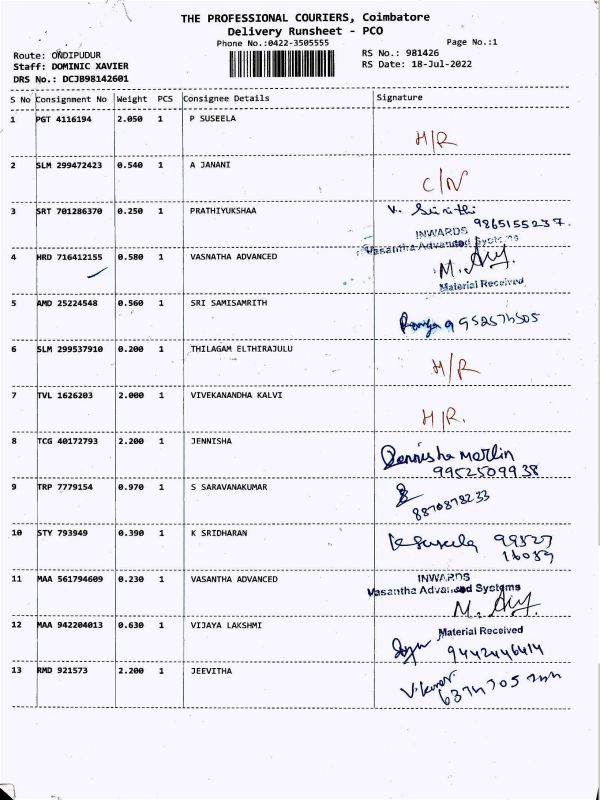 THE PROFESSIONAL COURIERS, Coimbatore
Delivery Runsheet - PCO
Phone No.:0422-3505555
Page No.:1
Route: ONDIPUDUR
RS No.: 981426
Staff: DOMINIC XAVIER
RS Date: 18-Jul-2022
DRS No.: DCJB98142601
S No Consignment No Weight PCS Consignee Details Signature
1 PGT 4116194 2.050 1 P SUSEELA
H/R
2 SLM 299472423 0.540 1 A JANANI
C/N
3 SRT 701286370 0.250 1 PRATHIYUKSHAA V.
9865155237.
INWARDS
Vasantha Advanced Systems
4 HRD 716412155 0.580 1 VASNATHA ADVANCED
M.
Material Received
5 AMD 25224548 0.560 1 SRI SAMISAMRITH
Ramya
6 SLM 299537910 0.200 1 THILAGAM ELTHIRAJULU
H/R
7 TVL 1626203 2.000 1 VIVEKANANDHA KALVI
H/R.
8 TCG 40172793 2.200 1 JENNISHA
Jennisha Merlin
9952509938
9 TRP 7779154 0.970 1 S SARAVANAKUMAR
8870878233
10 STY 793949 0.390 1 K SRIDHARAN
K Suseela 99527
16089
11 MAA 561794609 0.230 1 VASANTHA ADVANCED
INWARDS
Vasantha Advanced Systems
M.
12 MAA 942204013 0.630 1 VIJAYA LAKSHMI
Material Received
9442446414
13 RMD 921573 2.200 1 JEEVITHA
V.kumar